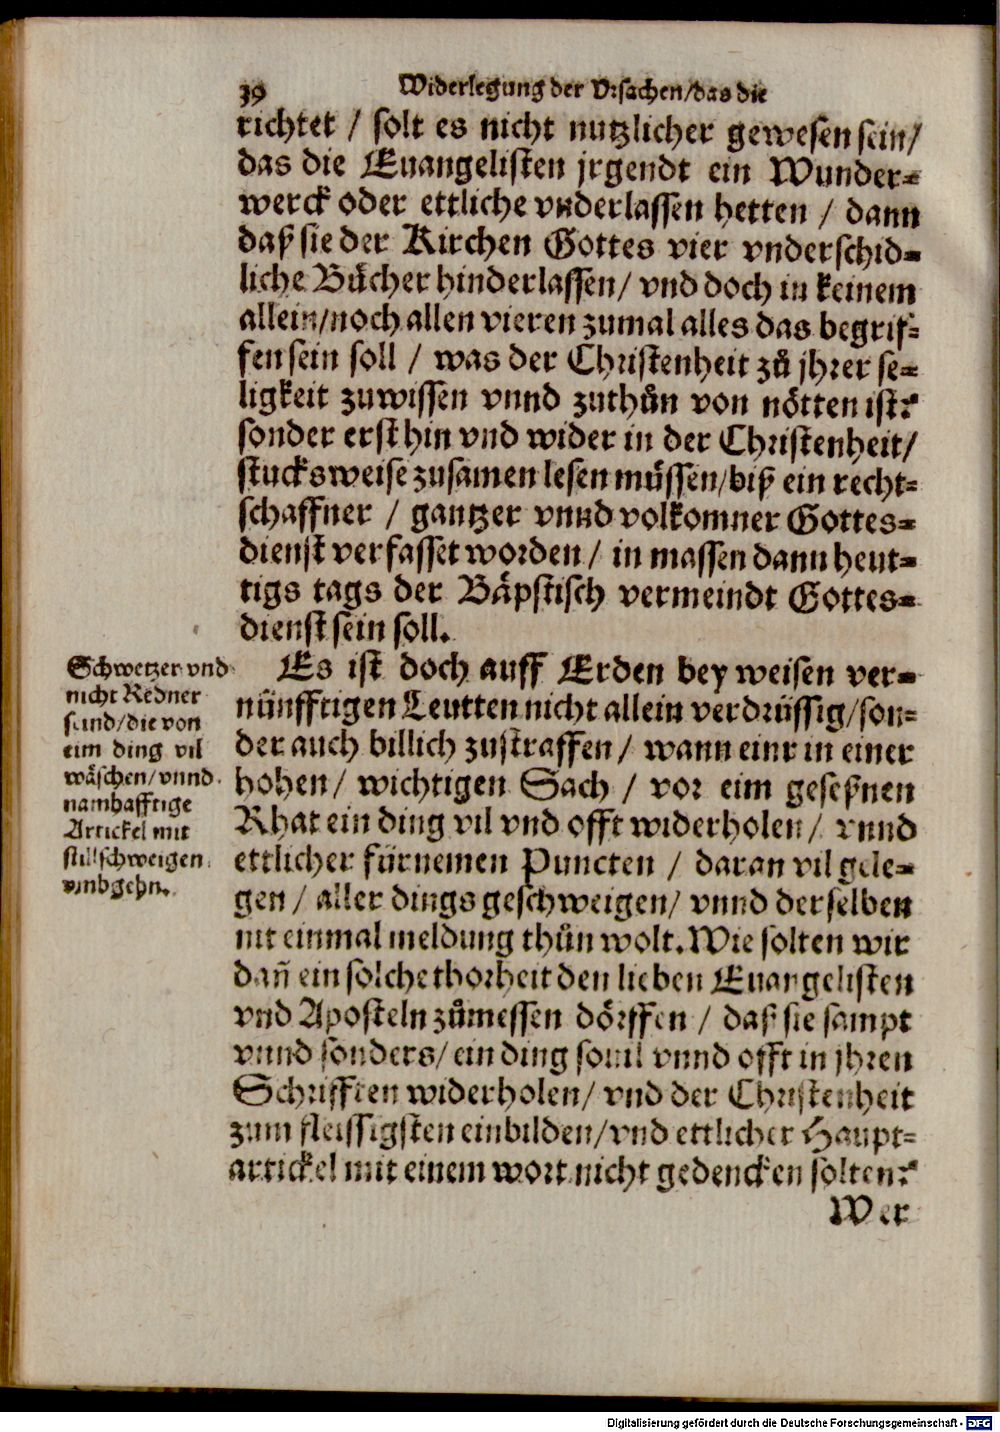 39 Widerlegung der Vrsachen/das die
richtet / solt es nicht nutzlicher gewesen sein/
das die Euangelisten jrgendt ein Wunder=
werck oder ettliche vnderlassen hetten / dann
daß sie der Kirchen Gottes vier vnderschid=
liche Bücher hinderlassen/ vnd doch in keinem
allein/noch allen vieren zumal alles das begrif=
fen sein soll / was der Christenheit zů jhrer se=
ligkeit zuwissen vnnd zuthůn von nötten ist?
sonder erst hin vnd wider in der Christenheit/
stucksweise zusamen lesen müssen/biß ein recht=
schaffner / gantzer vnnd volkomner Gottes=
dienst verfasset worden/ in massen dann heut=
tigs tags der Bäpstisch vermeindt Gottes=
dienst sein soll.
Schwetzer vnd
nicht Redner
seind/die von
eim ding vil
wäschen/vnnd
namhafftige
Artickel mit
stillschweigen
vmbgehn.
Es ist doch auff Erden bey weisen ver=
nünfftigen Leutten nicht allein verdrüssig/son=
der auch billich zustraffen/ wann einr in einer
hohen/ wichtigen Sach / vor eim geseßnen
Rhat ein ding vil vnd offt widerholen/ vnnd
ettlicher fürnemen Puncten / daran vil gele=
gen / aller dings geschweigen/ vnnd derselben
nit einmal meldung thůn wolt. Wie solten wir
dañ ein solche thorheit den lieben Euangelisten
vnd Aposteln zůmessen dörffen / daß sie sampt
vnnd sonders/ ein ding souil vnnd offt in jhren
Schrifften widerholen/ vnd der Christenheit
zum fleissigsten einbilden/vnd ettlicher Haupt=
artickel mit einem wort nicht gedencken solten?
Wer
Digitalisierung gefördert durch die Deutsche Forschungsgemeinschaft - DFG